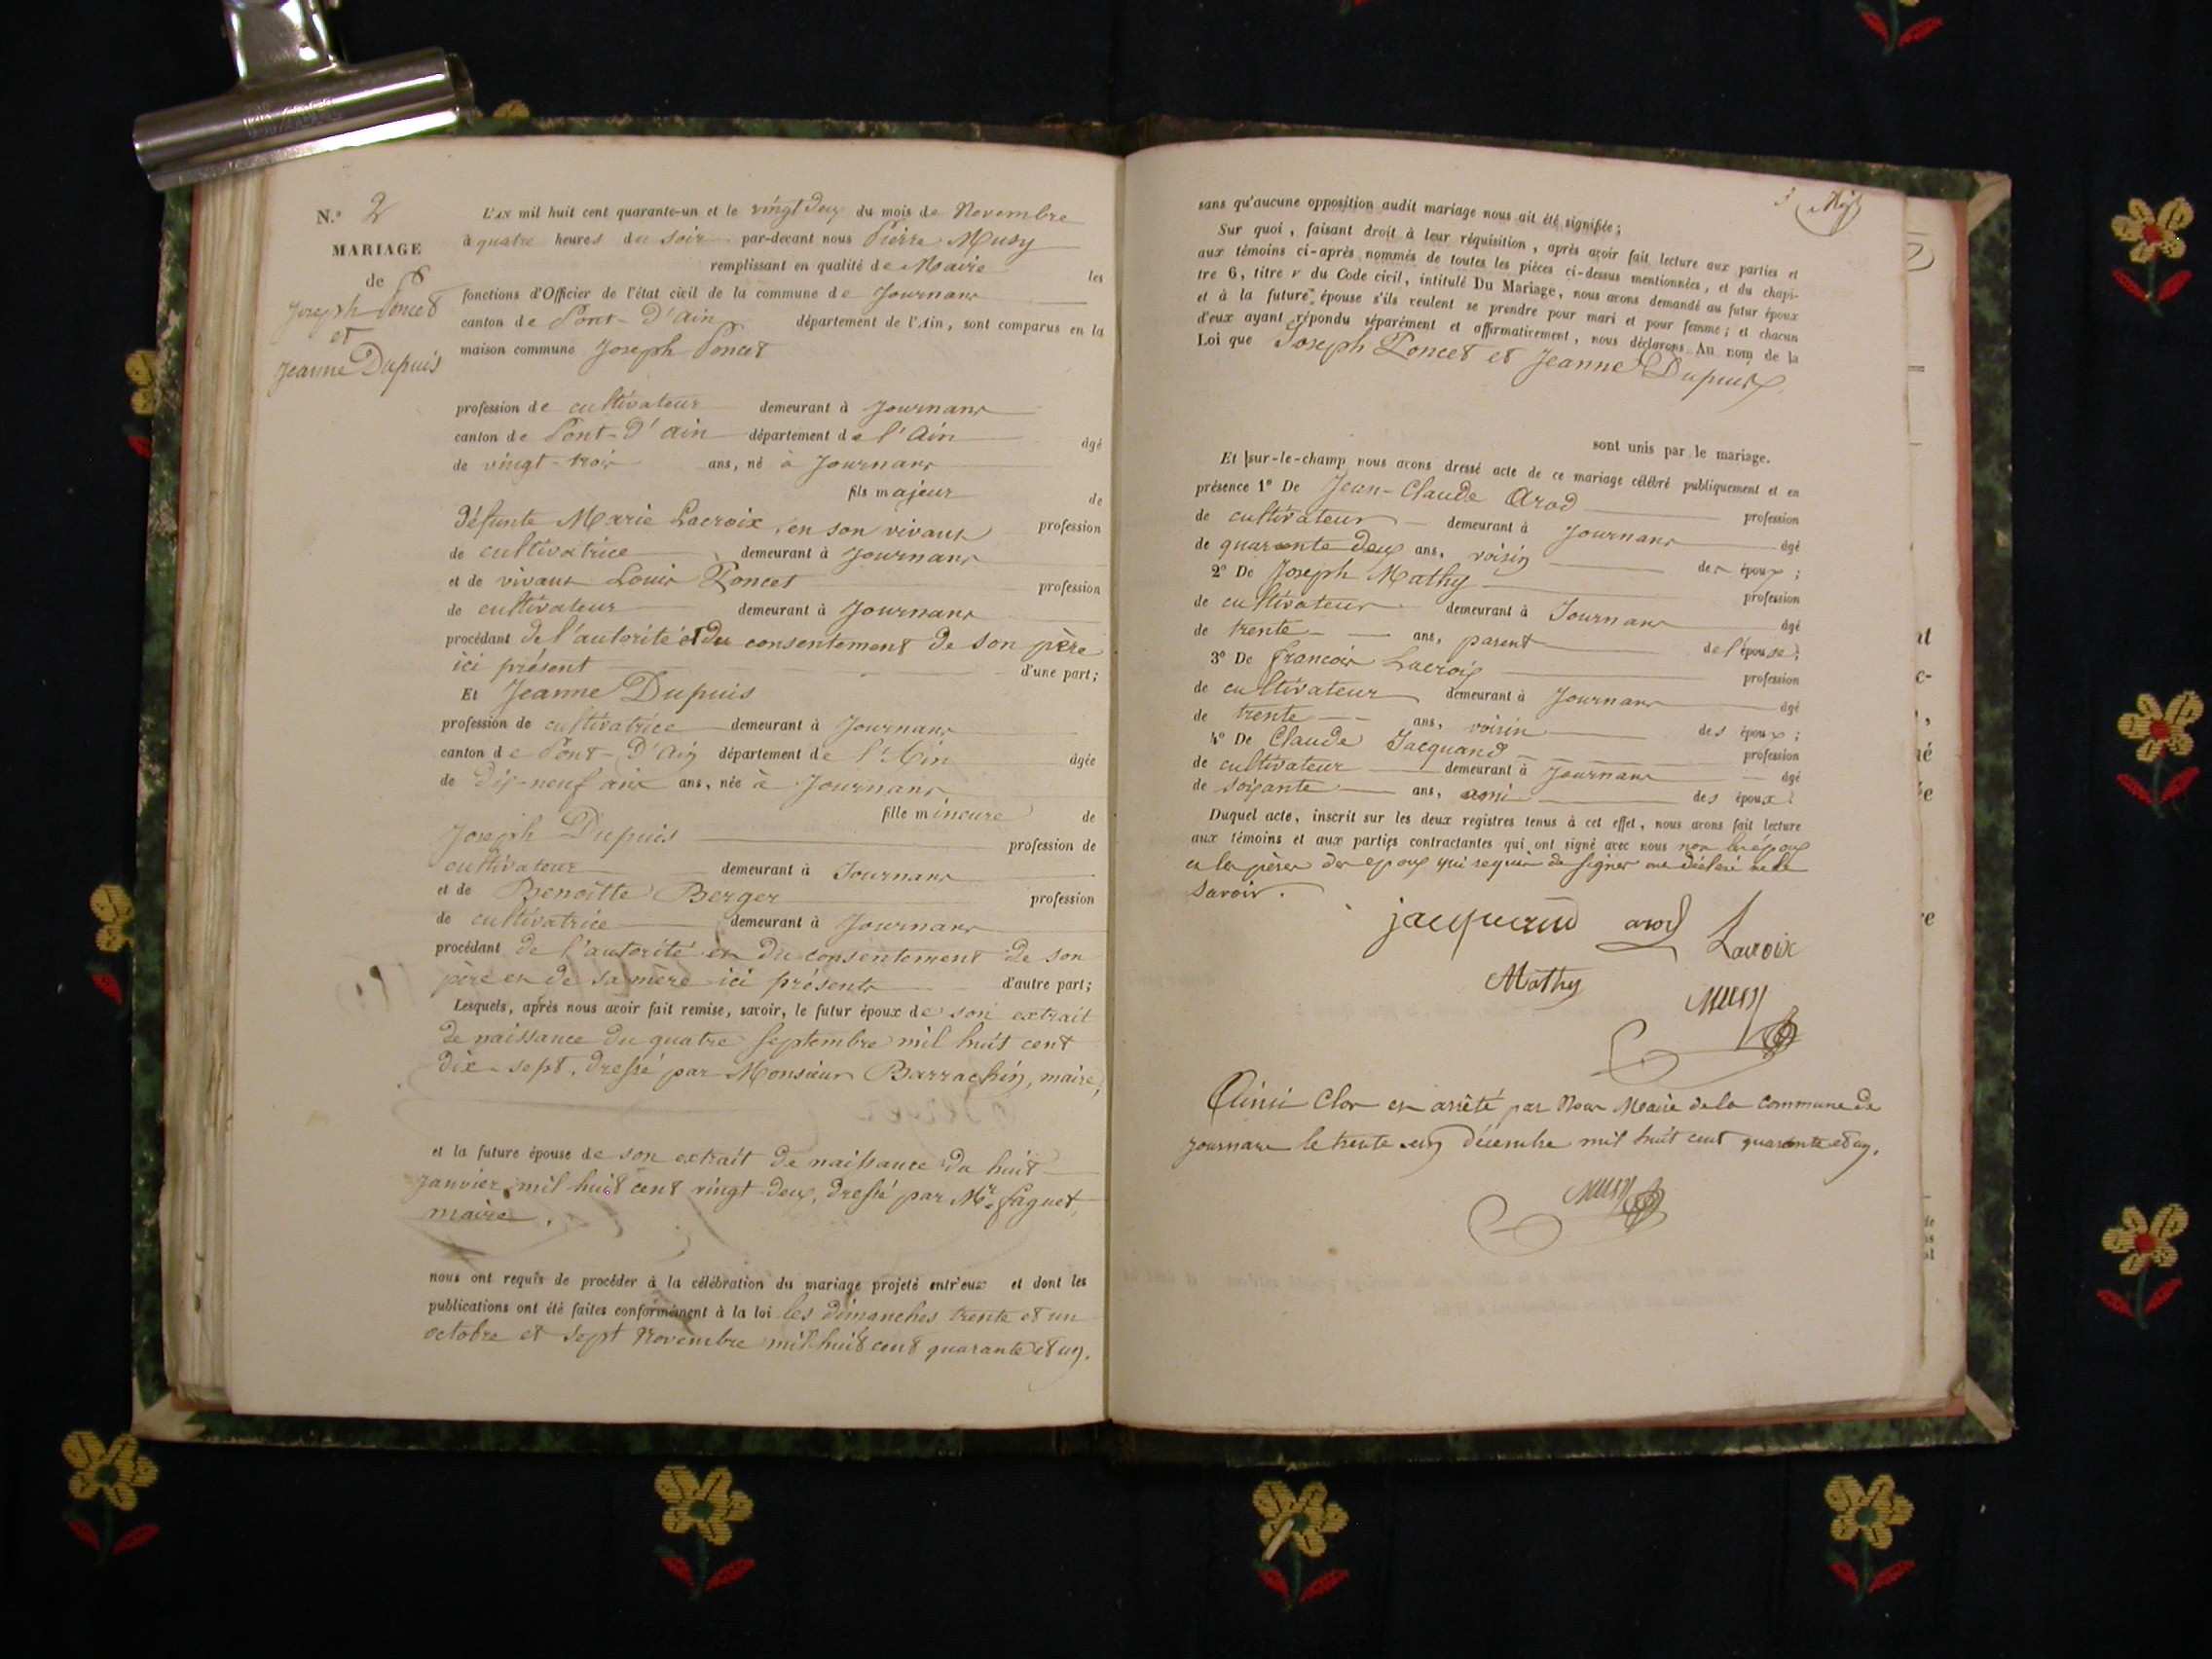 N.° 2
MARIAGE
de
Joseph Poncet
et
Jeanne Dupuis
L'AN mil huit cent quarante-un et le vingt deux du mois de Novembre
à quatre heures du soir par-devant nous Pierre Musy
remplissant en qualité de Maire les
fonctions d'Officier de l'état civil de la commune de Journans
canton de Pont-d'Ain département de l'Ain, sont comparus en la
maison commune Joseph Poncet
profession de cultivateur demeurant à Journans
canton de Pont-d'ain département de l'Ain âgé
de vingt-trois ans, né à Journans
fils majeur de
défunte Marie Lacroix, en son vivant profession
de cultivatrice demeurant à Journans
et de vivant Louis Poncet profession
de cultivateur demeurant à Journans
procédant de l'autorité et du consentement de son père
ici présent d'une part;
Et Jeanne Dupuis
profession de cultivatrice demeurant à Journans
canton de Pont-d'Ain département de l'Ain âgée
de dix-neuf ans ans, née à Journans
fille mineure de
Joseph Dupuis profession de
cultivateur demeurant à Journans
et de Benoitte Berger profession
de cultivatrice demeurant à Journans
procédant de l'autorité et du consentement de son
père et de sa mère ici présents d'autre part;
Lesquels, après nous avoir fait remise, savoir, le futur époux de son extrait
de naissance du quatre septembre mil huit cent
dix-sept, dressé par Monsieur Barrachin, maire,
et la future épouse de son extrait de naissance du huit
janvier mil huit cent vingt-deux, dressé par Mr. faguet,
maire.
nous ont requis de procéder à la célébration du mariage projeté entr'eux et dont les
publications ont été faites conformément à la loi les dimanches trente et un
octobre et sept Novembre mil huit cent quarante et un.
sans qu'aucune opposition audit mariage nous ait été signifiée;
Sur quoi, faisant droit à leur réquisition, après avoir fait lecture aux parties et
aux témoins ci-après nommés de toutes les pièces ci-dessus mentionnées, et du chapi-
tre 6, titre v du Code civil, intitulé Du Mariage, nous avons demandé au futur époux
et à la future épouse s'ils veulent se prendre pour mari et pour femme; et chacun
d'eux ayant répondu séparément et affirmativement, nous déclarons Au nom de la
Loi que Joseph Poncet et Jeanne Dupuis
sont unis par le mariage.
Et sur-le-champ nous avons dressé acte de ce mariage célébré publiquement et en
présence 1° De Jean-Claude Arod profession
de cultivateur demeurant à Journans âgé
de quarante deux ans, voisin des époux;
2° De Joseph Mathy profession
de cultivateur demeurant à Journans âgé
de trente ans, parent de l'épouse;
3° De francois Lacroix profession
de cultivateur demeurant à Journans âgé
de trente ans, voisin des époux;
4° De Claude Jacquand profession
de cultivateur demeurant à Journans âgé
de soixante ans, ami des époux
Duquel acte, inscrit sur les deux registres tenus à cet effet, nous avons fait lecture
aux témoins et aux parties contractantes qui ont signé avec nous non les époux
et les pères des epoux qui requis de signer ont déclaré ne le
savoir.
jacquand arod Lacroix
Mathy
Musy
Ainsi Clos et arrêté par Nous Maire de la Commune de
journans le trente un décembre mil huit cent quarante et un.
Musy